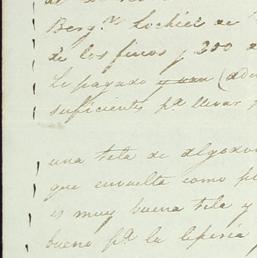 Berg.ⁿ Lochiel de
de los finos y 200
le pagado y una (ade
suficientes pª llevar
una tela de algodon
que envuelta como p
es muy buena tela y
bueno pª la leperia